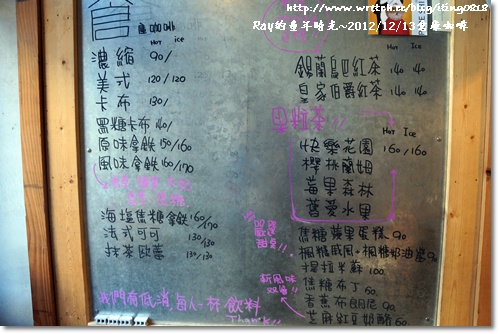 http://www.wretch.cc/blog/iting0818
Ray的童年時光~2012/12/13倉庫咖啡
倉庫咖啡
Hot Ice
濃縮 90/
美式 120/120
卡布 130/
黑糖卡布 140/
原味拿鐵 150/160
風味拿鐵 160/170
海塩焦糖拿鐵 160/170
法式可可 130/130
抹茶歐蕾 130/130
我們有低消,每人一杯飲料
Thank!!
Hot Ice
錫蘭烏巴紅茶 140 140
皇家伯爵紅茶 140 140
果粒茶
Hot Ice
快樂花園 160/160
櫻桃蘭姆
莓果森林
舊愛水果
嚴選
甜点!!
焦糖蘋果蛋糕 90
楓糖戚風+楓糖奶油醬 90
提拉米蘇 100
新風味
双醬
焦糖布丁 60
香蕉布朗尼 90
芝麻紅豆奶酪 60